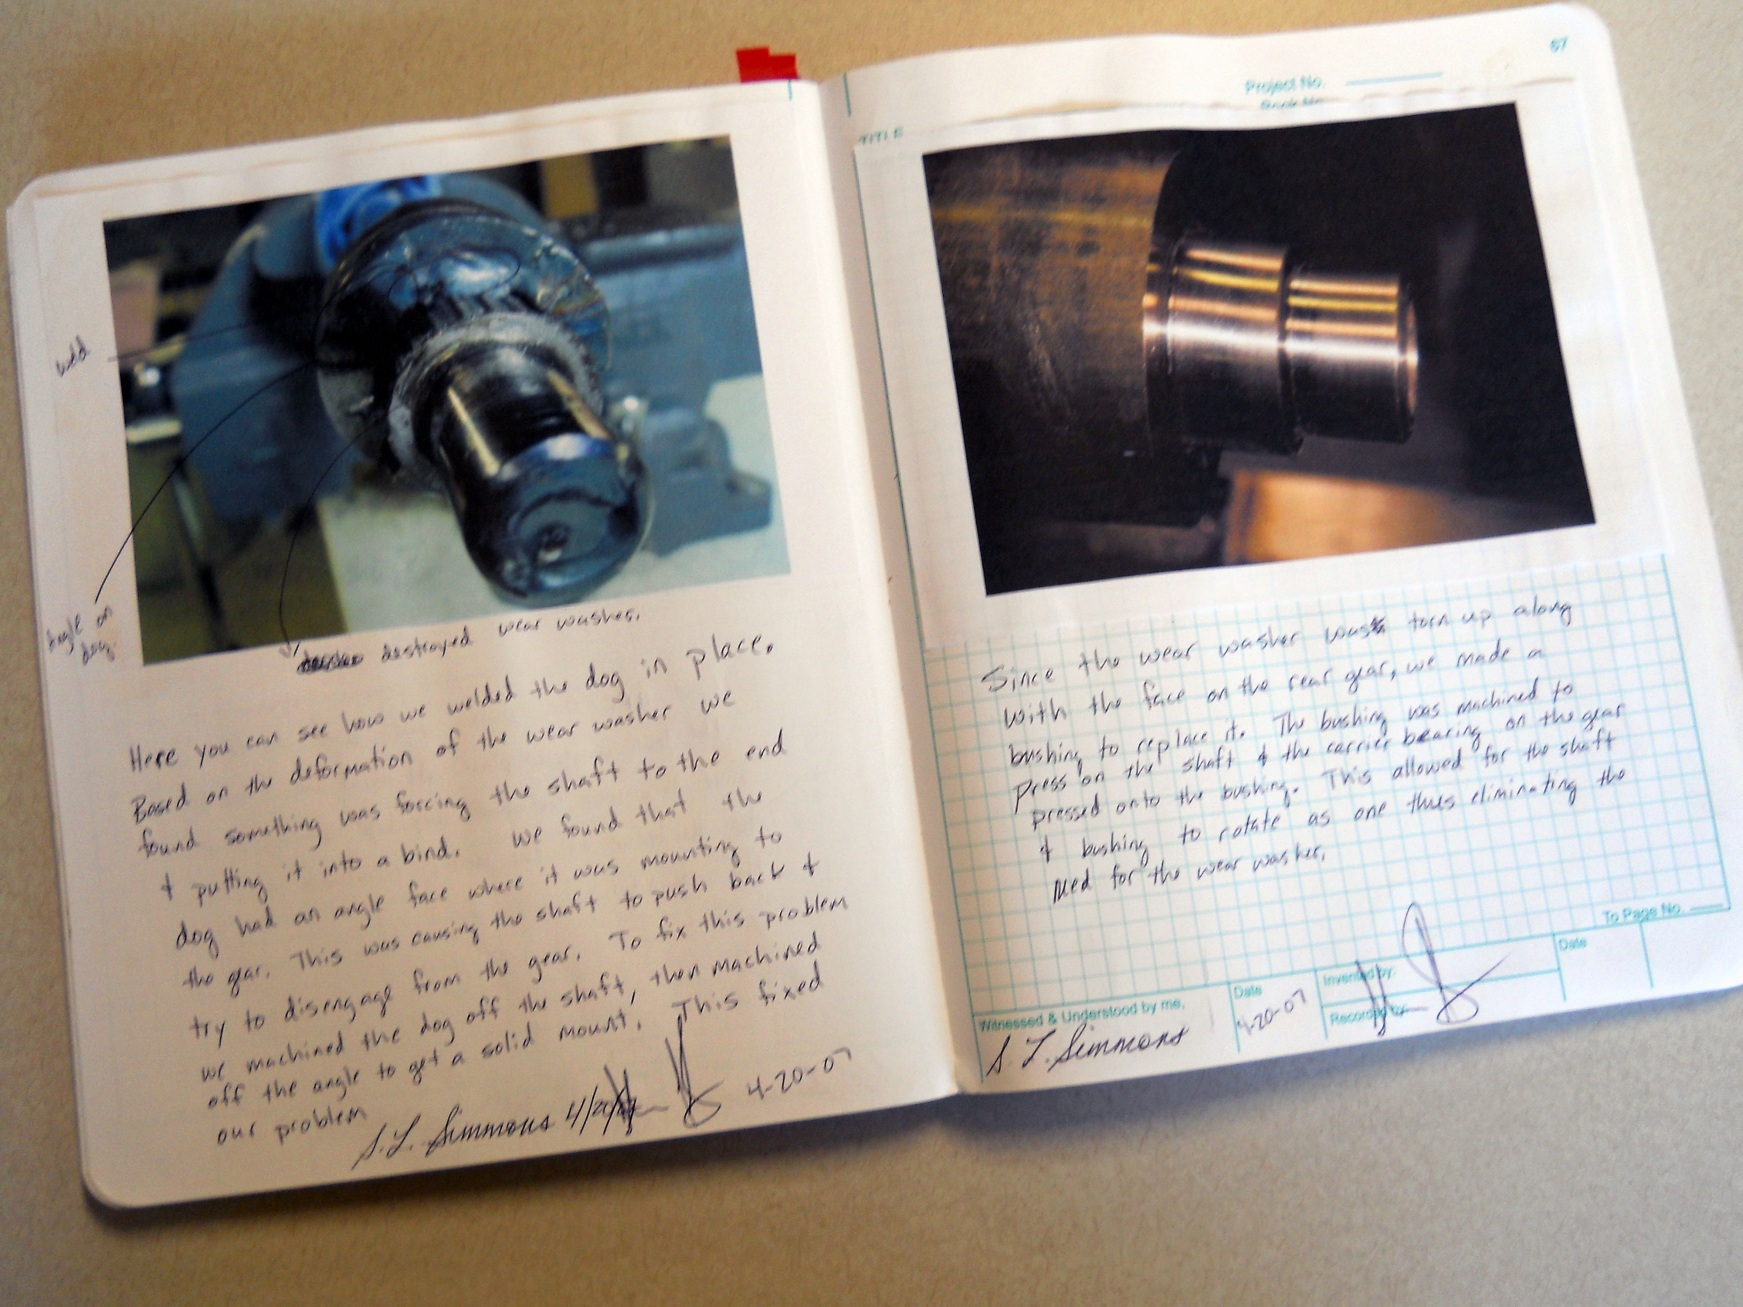 weld
Angle on
dog.
destroyed wear washer.
Here you can see how we welded the dog in place.
Based on the deformation of the wear washer we
found something was forcing the shaft to the end
& putting it into a bind. We found that the
dog had an angle face where it was mounting to
the gear. This was causing the shaft to push back &
try to disengage from the gear. To fix this problem
we machined the dog off the shaft, then machined
off the angle to get a solid mount. This fixed
our problem
S. L. Simmons
4-20-07
67
Project No.
Book No.
TITLE
Since the wear washer was torn up along
with the face on the rear gear, we made a
bushing to replace it. The bushing was machined to
press on the shaft & the carrier bearing on the gear
pressed onto the bushing. This allowed for the shaft
& bushing to rotate as one thus eliminating the
need for the wear washer.
To Page No.
Witnessed & Understood by me,
Date
Invented by:
Date
Recorded by:
S. L. Simmons
4-20-07